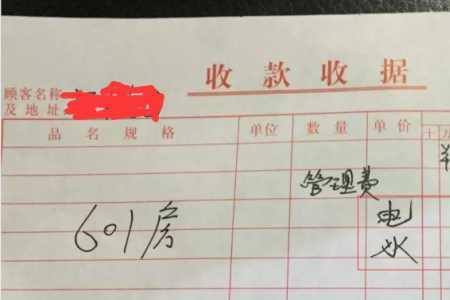 收款收据
顾客名称
及地址
品名规格 单位 数量 单价 十万
管理费
电
601房 水